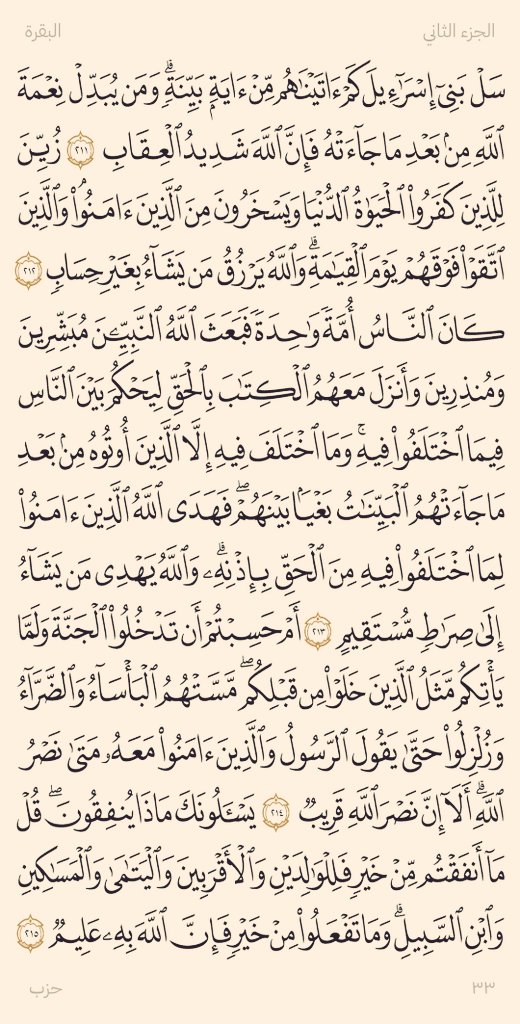 الجزء الثاني
البقرة
سَلْ بَنِىٓ إِسْرَٰٓءِيلَ كَمْ ءَاتَيْنَٰهُم مِّنْ ءَايَةٍۭ بَيِّنَةٍۗ وَمَن يُبَدِّلْ نِعْمَةَ
ٱللَّهِ مِنۢ بَعْدِ مَا جَآءَتْهُ فَإِنَّ ٱللَّهَ شَدِيدُ ٱلْعِقَابِ ٢١١ زُيِّنَ
لِلَّذِينَ كَفَرُوا۟ ٱلْحَيَوٰةُ ٱلدُّنْيَا وَيَسْخَرُونَ مِنَ ٱلَّذِينَ ءَامَنُوا۟ۘ وَٱلَّذِينَ
ٱتَّقَوْا۟ فَوْقَهُمْ يَوْمَ ٱلْقِيَٰمَةِۗ وَٱللَّهُ يَرْزُقُ مَن يَشَآءُ بِغَيْرِ حِسَابٍ ٢١٢
كَانَ ٱلنَّاسُ أُمَّةً وَٰحِدَةً فَبَعَثَ ٱللَّهُ ٱلنَّبِيِّـۧنَ مُبَشِّرِينَ
وَمُنذِرِينَ وَأَنزَلَ مَعَهُمُ ٱلْكِتَٰبَ بِٱلْحَقِّ لِيَحْكُمَ بَيْنَ ٱلنَّاسِ
فِيمَا ٱخْتَلَفُوا۟ فِيهِۚ وَمَا ٱخْتَلَفَ فِيهِ إِلَّا ٱلَّذِينَ أُوتُوهُ مِنۢ بَعْدِ
مَا جَآءَتْهُمُ ٱلْبَيِّنَٰتُ بَغْيًۢا بَيْنَهُمْۖ فَهَدَى ٱللَّهُ ٱلَّذِينَ ءَامَنُوا۟
لِمَا ٱخْتَلَفُوا۟ فِيهِ مِنَ ٱلْحَقِّ بِإِذْنِهِۦۗ وَٱللَّهُ يَهْدِى مَن يَشَآءُ
إِلَىٰ صِرَٰطٍ مُّسْتَقِيمٍ ٢١٣ أَمْ حَسِبْتُمْ أَن تَدْخُلُوا۟ ٱلْجَنَّةَ وَلَمَّا
يَأْتِكُم مَّثَلُ ٱلَّذِينَ خَلَوْا۟ مِن قَبْلِكُمۖ مَّسَّتْهُمُ ٱلْبَأْسَآءُ وَٱلضَّرَّآءُ
وَزُلْزِلُوا۟ حَتَّىٰ يَقُولَ ٱلرَّسُولُ وَٱلَّذِينَ ءَامَنُوا۟ مَعَهُۥ مَتَىٰ نَصْرُ
ٱللَّهِۗ أَلَآ إِنَّ نَصْرَ ٱللَّهِ قَرِيبٌ ٢١٤ يَسْـَٔلُونَكَ مَاذَا يُنفِقُونَۖ قُلْ
مَآ أَنفَقْتُم مِّنْ خَيْرٍ فَلِلْوَٰلِدَيْنِ وَٱلْأَقْرَبِينَ وَٱلْيَتَٰمَىٰ وَٱلْمَسَٰكِينِ
وَٱبْنِ ٱلسَّبِيلِۗ وَمَا تَفْعَلُوا۟ مِنْ خَيْرٍ فَإِنَّ ٱللَّهَ بِهِۦ عَلِيمٌ ٢١٥
٣٣
حزب